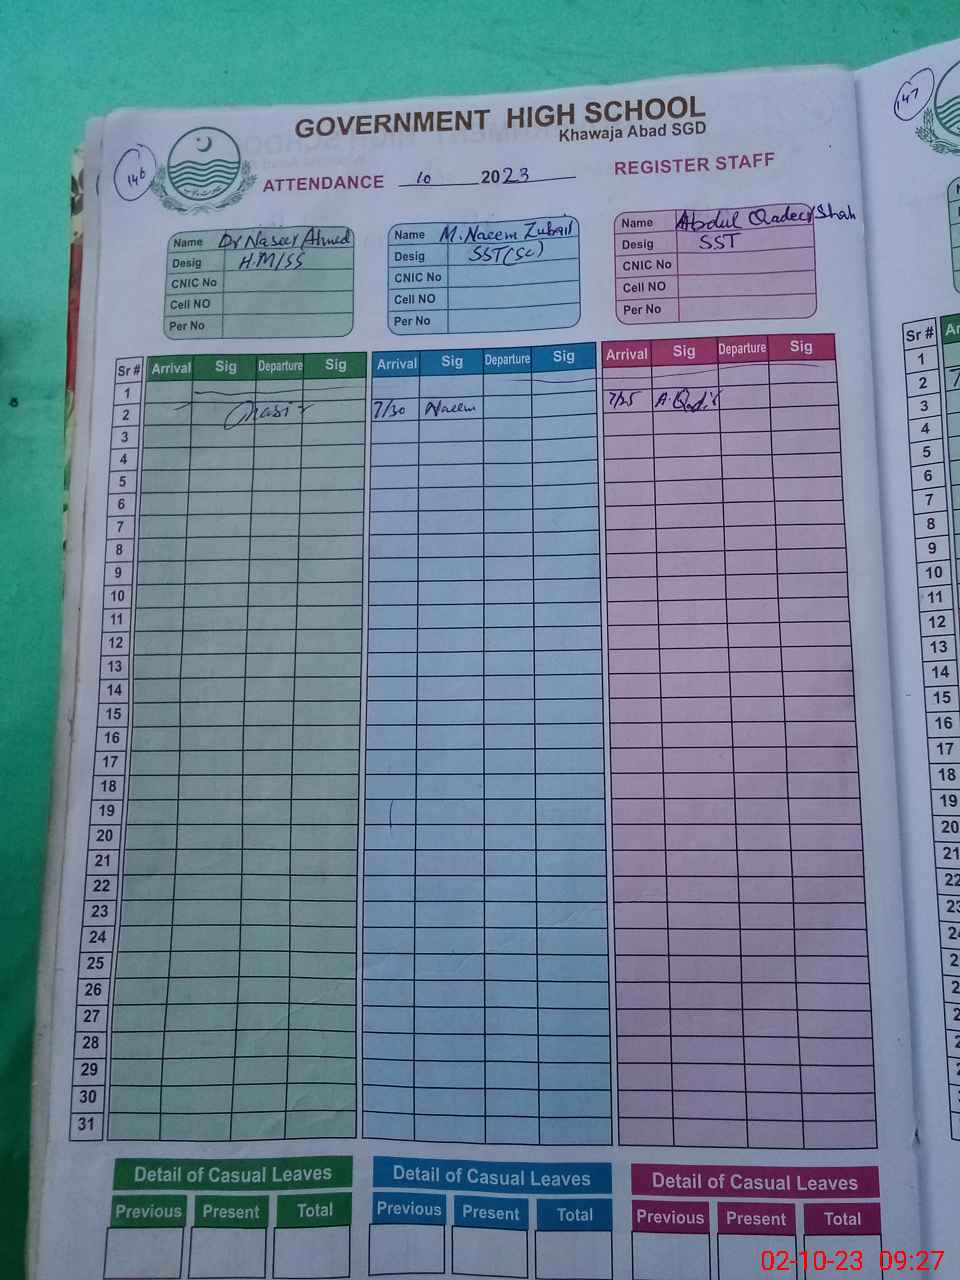 GOVERNMENT HIGH SCHOOL
Khawaja Abad SGD
146
147
ATTENDANCE 10 2023 REGISTER STAFF
Name Dr Naseer Ahmed
Desig H.M/SS
CNIC No
Cell NO
Per No
Name M. Naeem Zubair
Desig SST(Sc)
CNIC No
Cell NO
Per No
Name Abdul Qadeer Shah
Desig SST
CNIC No
Cell NO
Per No
Sr # Arrival Sig Departure Sig Arrival Sig Departure Sig Arrival Sig Departure Sig Sr #
1 1
2 7/30 Naeem 7/25 A.Qadir 2
3 3
4 4
5 5
6 6
7 7
8 8
9 9
10 10
11 11
12 12
13 13
14 14
15 15
16 16
17 17
18 18
19 19
20 20
21 21
22 22
23
24
25
26
27
28
29
30
31
Detail of Casual Leaves Detail of Casual Leaves Detail of Casual Leaves
Previous Present Total Previous Present Total Previous Present Total
02-10-23 09:27